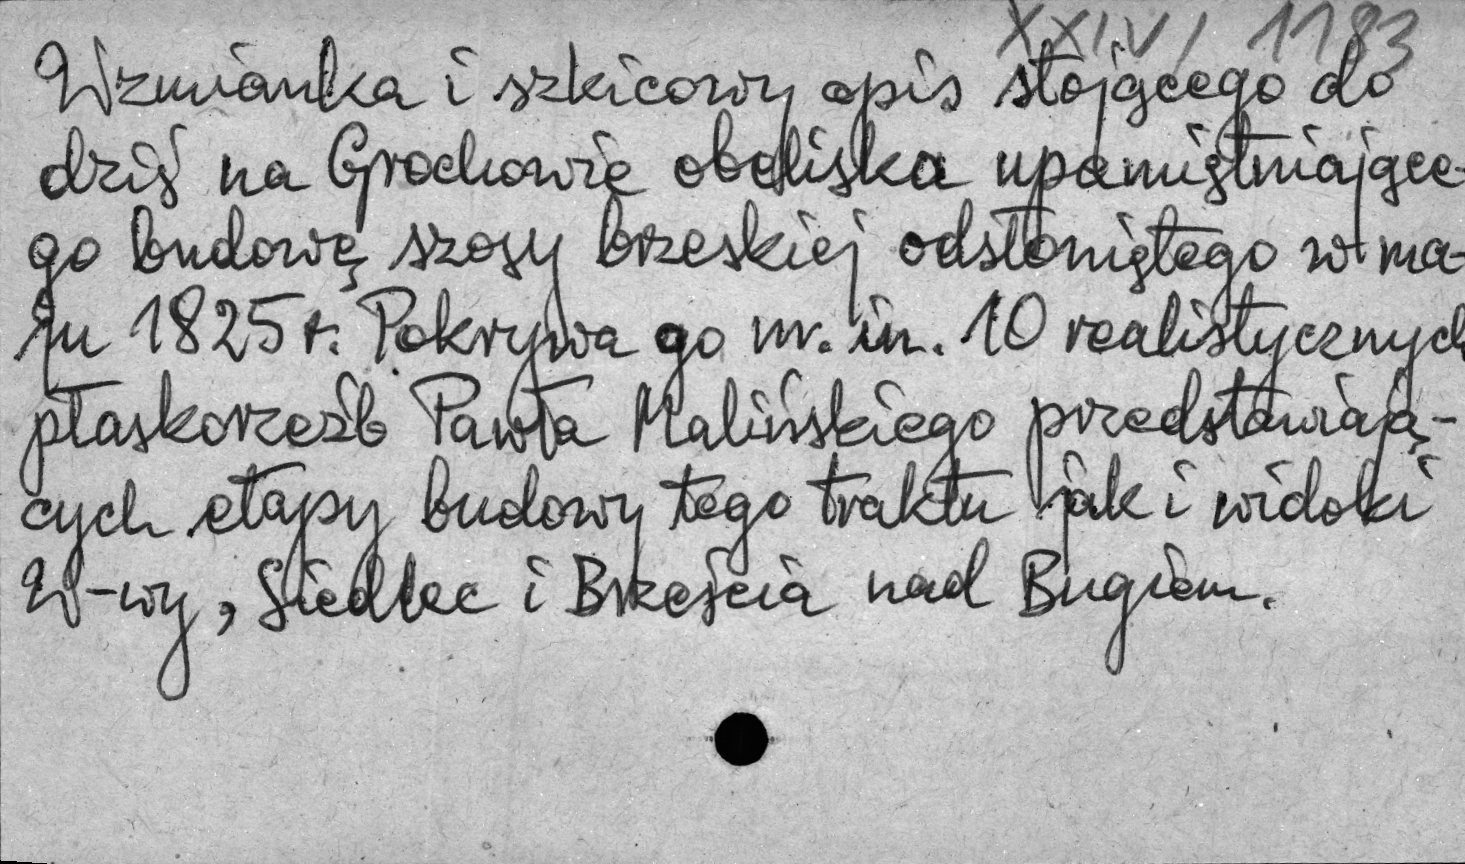 XXIV/1183
Wzmianka i szkicowy opis stojącego do
dziś na Grochowie obeliska upamiętniające-
go budowę szosy brzeskiej odsłoniętego w ma-
ju 1825 r. Pokrywa go m. in. 10 realistycznych
płaskorzeźb Pawła Malińskiego przedstawiają-
cych etapy budowy tego traktu jak i widoki
W-wy, Siedlec i Brześcia nad Bugiem.